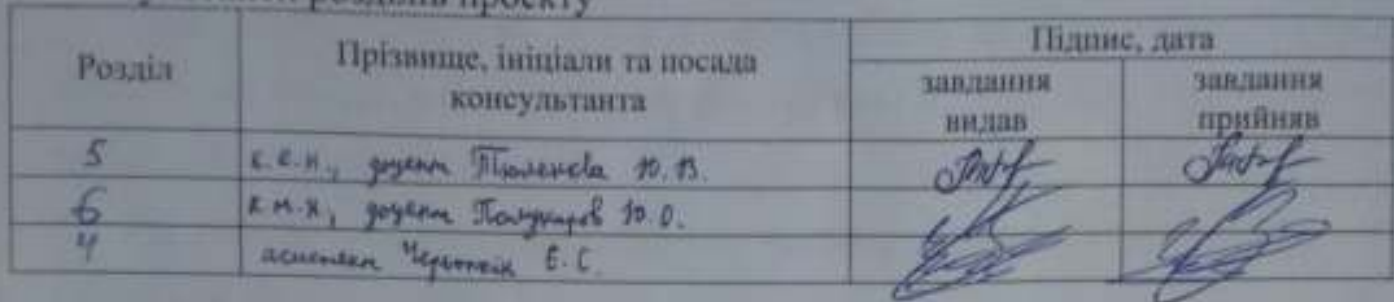 розділів проєкту
Розділ
Прізвище, ініціали та посада
консультанта
Підпис, дата
завдання
видав
завдання
прийняв
5
к.е.н., доцент Тюленєва Ю.В.
6
к.т.н., доцент Полукаров Ю.О.
4
асистент Є.С.